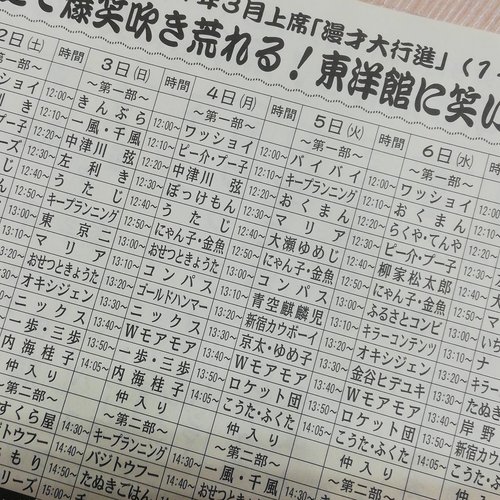 年3月上席「漫才大行進」(1
で爆笑吹き荒れる！東洋館に笑い
2日(土)
~第一部~
ッショイ
り き
プー子
ーズ
時間
12:00~
12:10~
12:20~
12:30~
12:40~
12:50~
13:00~
13:10~
13:20~
13:30~
13:40~
13:50~
14:05~
3日(日)
~第一部~
きんぷら
一風・千風
中津川 弦
左利き
うたじ
キープランニング
東 京 二
マ リ ア
おせつときょうた
オキシジェン
ニックス
一歩・三歩
内海桂子
仲入り
~第二部~
すくら屋
バジトウフー
もり
リーズ
時間
12:00~
12:10~
12:20~
12:30~
12:40~
12:50~
13:00~
13:10~
13:20~
13:30~
13:40~
13:50~
14:05~
14:30~
14:40~
14:50~
15:00~
4日(月)
~第一部~
ワッショイ
ピー介・プー子
中津川 弦
ぼっけもん
うたじ
にゃん子・金魚
おせつときょうた
コンパス
ゴールドハンマー
ニックス
Wモアモア
一歩・三歩
内海桂子
仲入り
~第二部~
キープランニング
バジトウフー
たぬきごはん
時間
12:00~
12:10~
12:20~
12:30~
12:40~
12:50~
13:00~
13:10~
13:20~
13:30~
13:40~
13:50~
14:05~
14:30~
14:40~
5日(火)
~第一部~
バイバイ
キープランニング
おくまん
マリア
大瀬ゆめじ
にゃん子・金魚
コンパス
青空麒麟児
新宿カウボーイ
京太・ゆめ子
Wモアモア
ロケット団
こうた・ふくた
仲入り
~第二部~
一風・千風
時間
12:00~
12:10~
12:20~
12:30~
12:40~
12:50~
13:00~
13:10~
13:20~
13:30~
13:40~
13:50~
14:05~
14:30~
14:40~
6日(水)
~第一部~
ワッショイ
おくまん
らくや・てんや
ピー介・プー子
柳家松太郎
にゃん子・金魚
ふるさとコンビ
キラーコンテンツ
オキシジェン
金谷ヒデユキ
Wモアモア
ロケット団
こうた・ふくた
仲入り
~第二部~
時間
12:00~
12:10~
12:20~
12:30~
12:40~
12:50~
13:00~
13:10~
13:20~
13:30~
13:40~
13:50~
14:05~
いち
ナ
キー
たぬき
岸 野
新宿カ